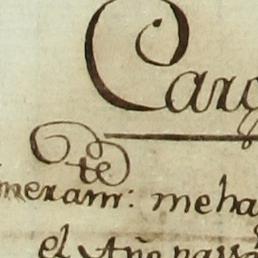 Carg
te
meram: me ha
el Año passa